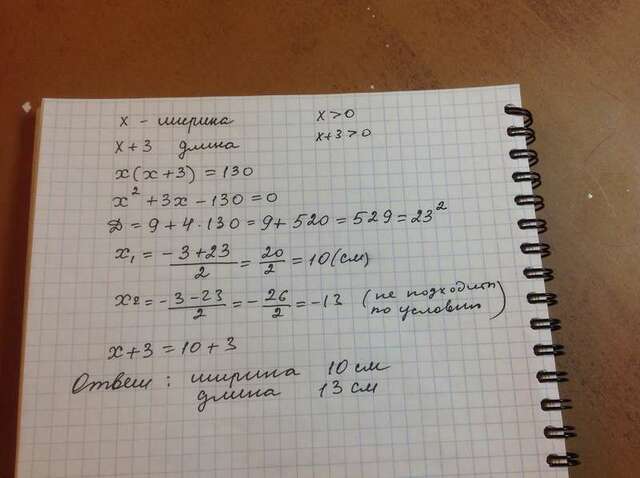 x - ширина x > 0
x+3 длина x+3 > 0
x(x+3) = 130
x² + 3x - 130 = 0
Д = 9 + 4·130 = 9 + 520 = 529 = 23²
x₁ = (-3+23)/2 = 20/2 = 10 (см)
x₂ = (-3-23)/2 = -26/2 = -13 (не подходит
по условию)
x+3 = 10+3
Ответ: ширина 10 см
длина 13 см